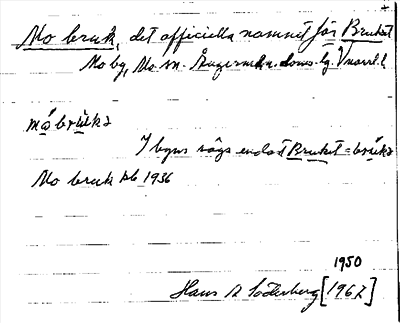 Mo bruk, det officiella namnet för Bruket
Mo by, Mo sn. Ångermanl. doms. lg. Vnorrl. l
I byn sägs endast Bruket =
Mo bruk kb 1936
1950
Hans A Söderberg [1967]